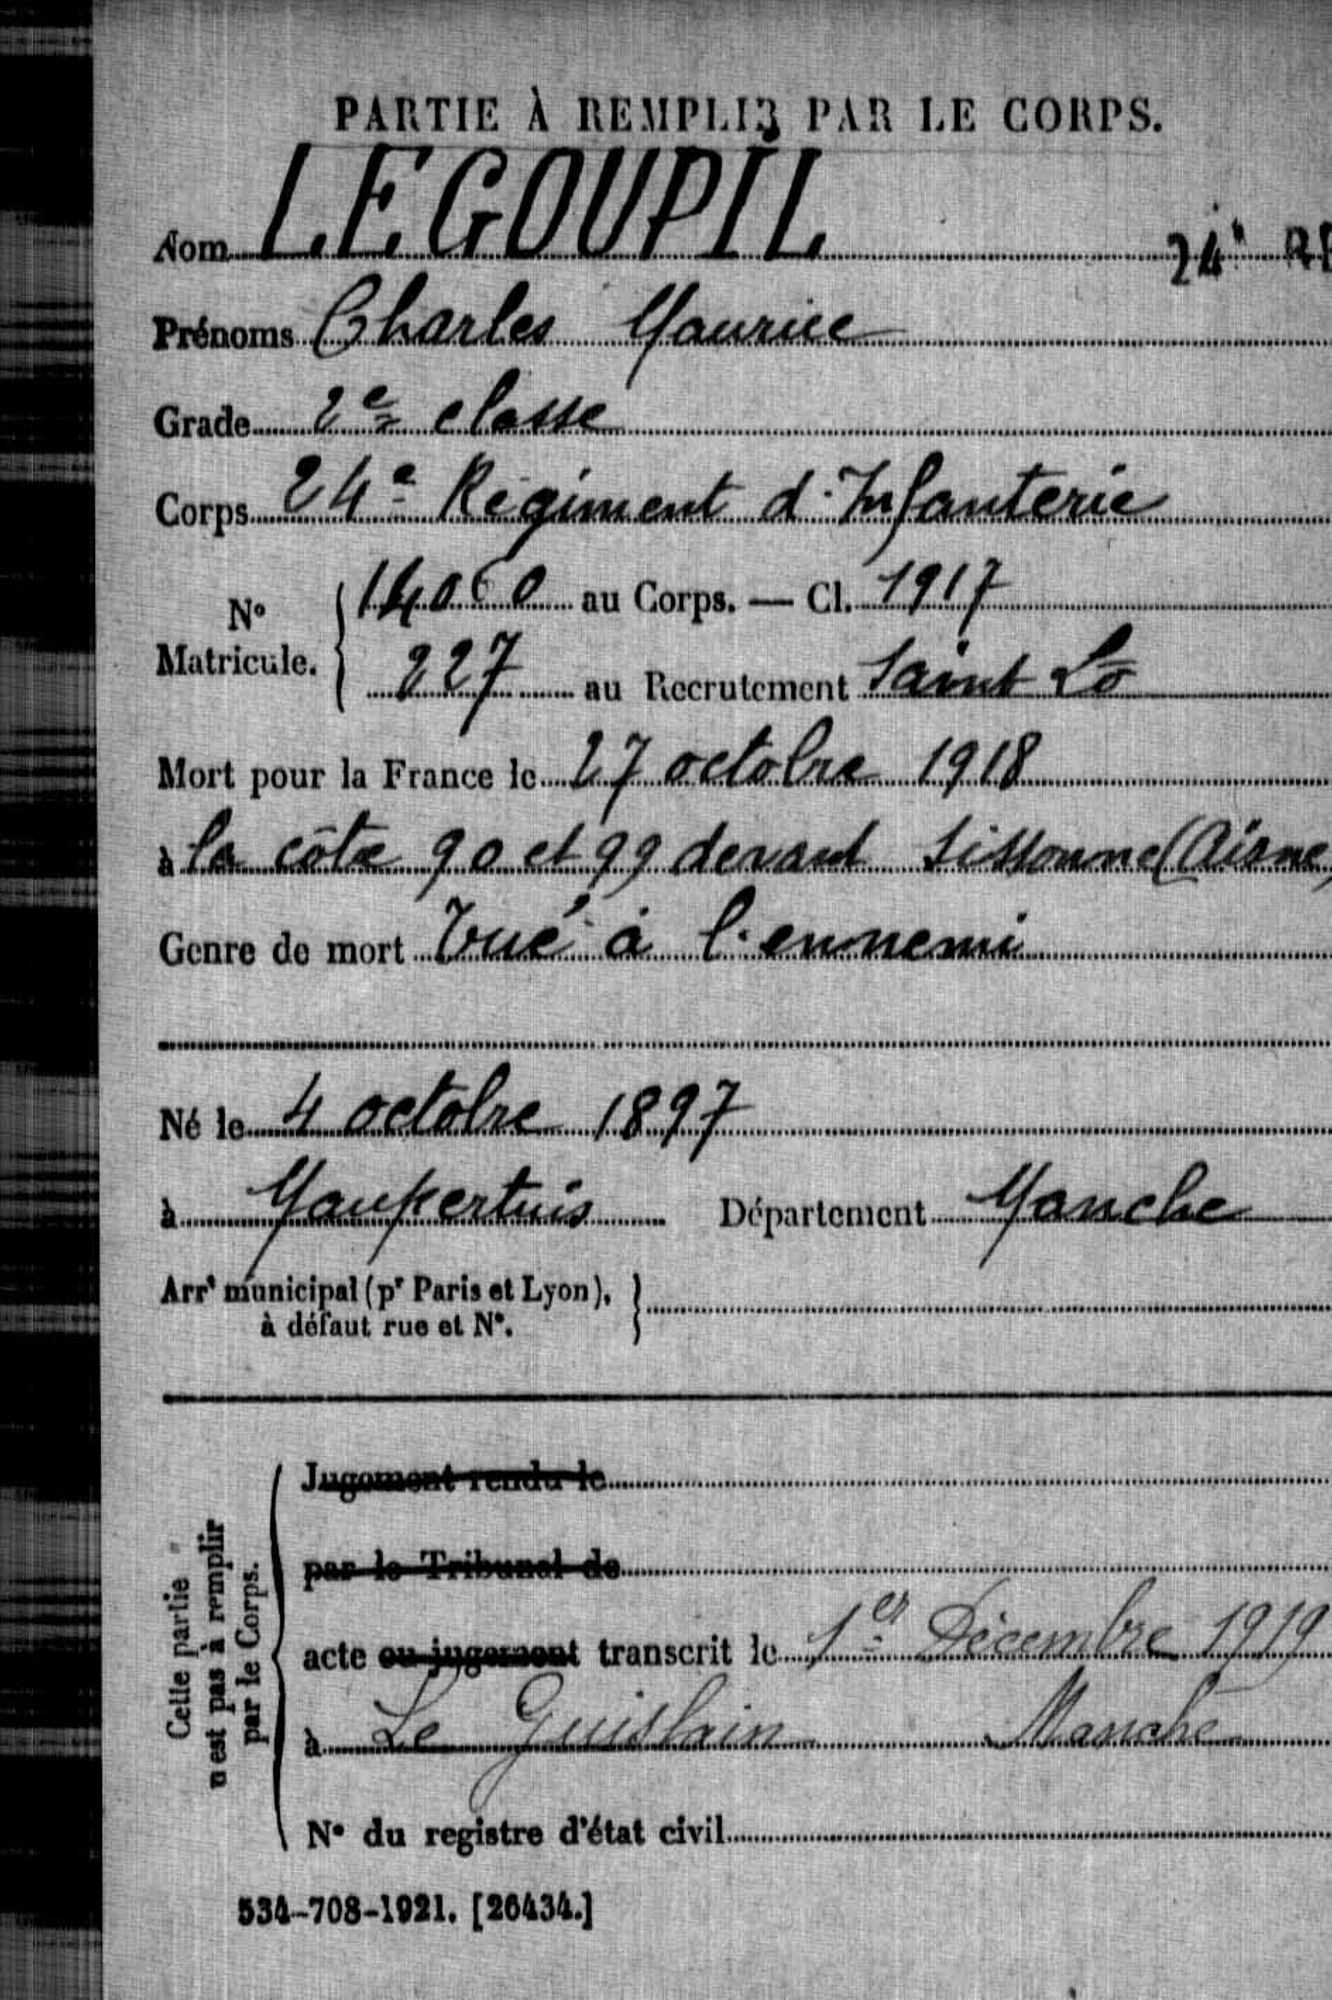 PARTIE À REMPLIR PAR LE CORPS.
Nom LEGOUPIL
24e RI
Prénoms Charles Maurice
Grade 2e classe
Corps 24e Régiment d'Infanterie
No Matricule. 14060 au Corps. — Cl. 1917
227 au Recrutement Saint Lô
Mort pour la France le 27 octobre 1918
à la côte 90 et 99 devant Sissonne (Aisne)
Genre de mort Tué à l'ennemi
Né le 4 octobre 1897
à Maupertuis Département Manche
Arrt municipal (pr Paris et Lyon),
à défaut rue et No.
Cette partie
n'est pas à remplir
par le Corps.
Jugement rendu le
par le Tribunal de
acte ou jugement transcrit le 1er Décembre 1919
à Le Guislain Manche
No du registre d'état civil
534-708-1921. [26434.]